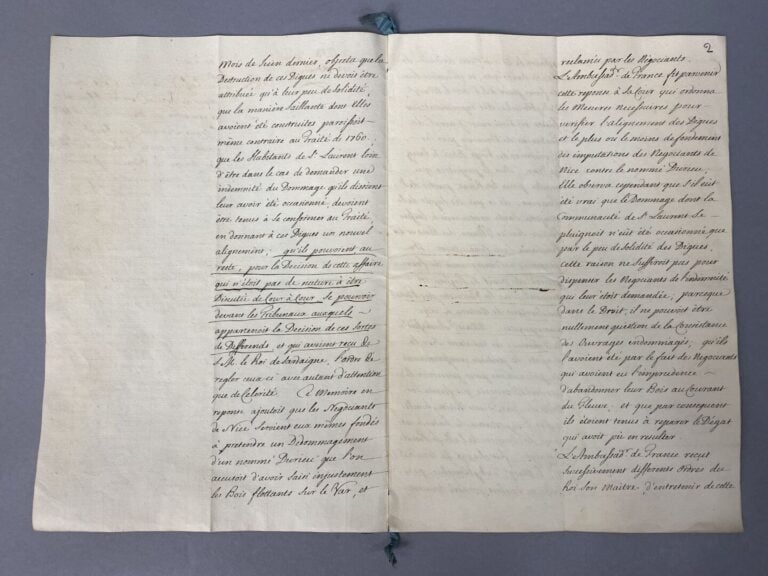 Mois de Juin dernier, objecta que la
Destruction de ces Digues ne devoit être
attribuée qu'à leur peu de Solidité,
que la manière Saillante dont Elles
avoient été construites paroissoit
même contraire au Traité de 1760.
que les Habitants de St. Laurent loin
d'être dans le cas de demander une
indemnité du Dommage qu'ils disoient
leur avoir été occasionné, devoient
être tenus à se conformer au Traité
en donnant à ces Digues un nouvel
alignement; qu'ils pouvoient au
reste, pour la Decision de cette affaire
qui n'étoit pas de nature à être
Discutée de Cour à Cour Se pourvoir
devant les Tribunaux auxquels
appartenoit la Decision de ces Sortes
de Differends et qui avoient reçu de
S. M. le Roi de Sardaigne l'ordre de
regler ceux ci avec autant d'attention
que de Celerité. Ce Memoire en
reponse ajoutoit que les Négociants
de Nice Seroient eux mêmes fondés
à pretendre un Dédommagement
d'un nommé Durieu que l'on
accusoit d'avoir Saisi injustement
les Bois flottants Sur le Var, et
2
reclamés par les Négociants.
L'Ambassadr. de France fit parvenir
cette reponse à Sa Cour qui ordonna
les Mesures necessaires pour
verifier l'alignement des Digues
et le plus ou le moins de fondement
des imputations des Negociants de
Nice contre le nommé Durieu;
Elle observa cependant que S'il eut
été vrai que le Dommage dont la
Communauté de St. Laurent Se
plaignoit n'eût été occasionnée que
par le peu de Solidité des Digues,
cette raison ne Suffiroit pas pour
dispenser les Negociants de l'indemnité
qui leur étoit demandée, parceque
dans le Droit, il ne pouvoit être
nullement question de la Consistance
des Ouvrages endommagés, qu'ils
l'avoient été par le fait des Negociants
qui avoient eu l'imprudence
d'abandonner leur Bois au Courant
du Fleuve, et que par consequent
ils étoient tenus à reparer le Degat
qui avoit pû en resulter
L'Ambassadr. de France reçut
Successivement differents Ordres du
Roi Son Maitre d'entretenir de cette